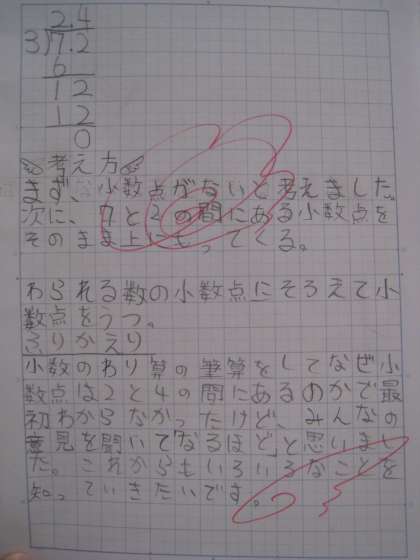 2.4
3)7.2
6
12
12
0
考え方
まず、小数点がないと考えました。
次に、7と2の間にある小数点を
そのまま上にもってくる。
わられる数の小数点にそろえて小
数点をうつ。
ふりかえり
小数のわり算の筆算をしてなぜ小
数点は2と4の間にあるのかで最
初わからなかったけど、みんなの
意見を聞いて「なるほど」と思いまし
た。これからもいろいろなことを
知っていきたいです。